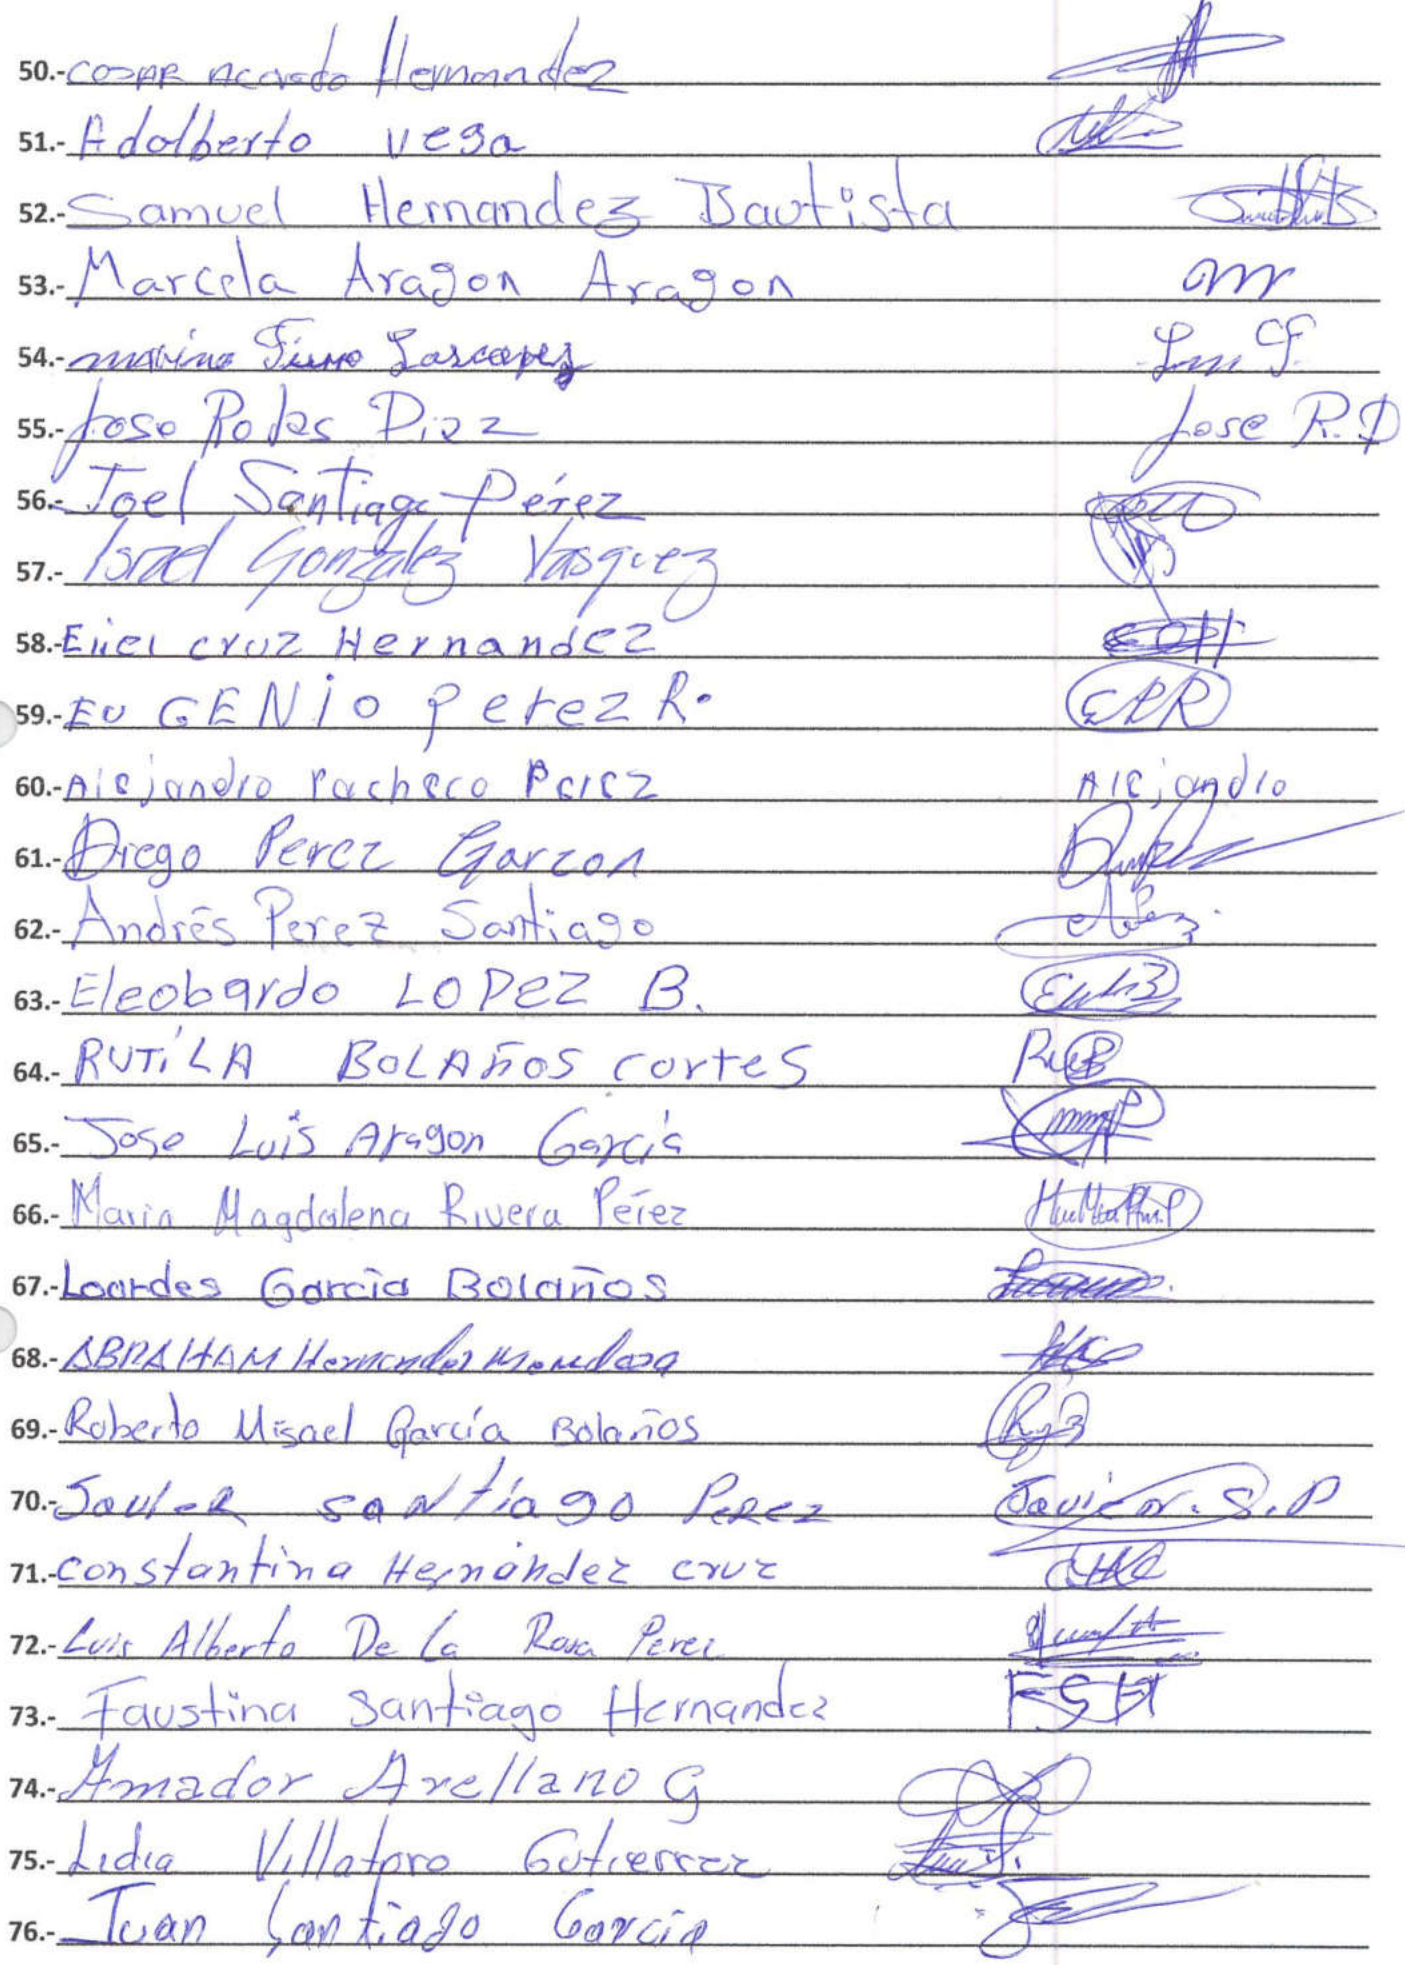 50.- COSAR Acevedo Hernandez
51.- Adalberto Vega
52.- Samuel Hernandez Bautista
53.- Marcela Aragon Aragon
54.- marino
55.- Jose Rojas Diaz Jose R.D
56.- Joel Santiago Pérez
57.- Israel González Vasquez
58.- Eliel cruz Hernandez
59.- EUGENIO perez R. EPR
60.- Alejandro Pacheco Perez Alejandro
61.- Diego Perez Garzon
62.- Andrés Perez Santiago
63.- Eleobardo LOPEZ B.
64.- RUTiLA BOLAÑOS cortes
65.- Jose Luis Aragon García
66.- Maria Magdalena Rivera Pérez
67.- Lourdes García Bolaños
68.- ABRAHAM Hernandez Mendoza
69.- Roberto Misael García Bolaños
70.- Javier santiago Perez Javier. S. P
71.- constantina Hernández cruz
72.- Luis Alberto De La Rosa Perez
73.- Faustina Santiago Hernandez FSH
74.- Amador Arellano G
75.- Lidia Villatoro Gutierrez
76.- Juan Santiago Garcia